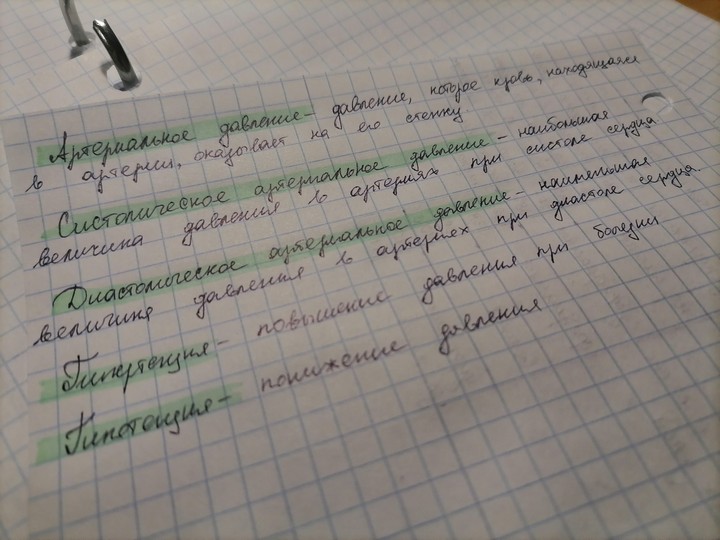 Артериальное давление - давление, которое кровь, находящаяся
в артерии, оказывает на его стенку
Систолическое артериальное давление - наибольшая
величина давления в артериях при систоле сердца
Диастолическое артериальное давление - наименьшая
величина давления в артериях при диастоле сердца.
Гипертензия - повышение давления при болезни
Гипотензия - понижение давления